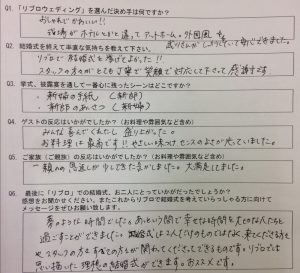 01. 「リブロウェディング」を選んだ決め手は何ですか?
おしゃれでかわいい!!
会場がホテルとかと違ってアットホーム。外国風も
02. 結婚式を終えて率直な気持ちを教えて下さい。
リブロで結婚式を挙げてよかった!!
スタッフの方々がとても丁寧で笑顔で対応して下さって感謝です
03. 挙式、披露宴を通して一番心に残ったシーンはどこですか?
・新婦の手紙 (新郎)
・新郎のあいさつ (新婦)
04. ゲストの反応はいかがでしたか?(お料理や雰囲気など含め)
みんな喜んでくれたし 盛り上がった。
お料理は最高です!!やさしい味つけセンスのよさが光っていました。
05. ご家族(ご親族)の反応はいかがでしたか?(お料理や雰囲気など含め)
大満足してました。
06. 最後に「リブロ」での結婚式、お二人にとっていかがだったでしょうか?
感想をお聞かせください。またこれからリブロでの結婚式を考えていらっしゃる方に向けて
メッセージをぜひお願い致します。
夢のような時間でした。あっという間で幸せな時間を大切な人たちと
過ごすことができました。結婚式は2人だけのものではなく、来てくださる方々
やスタッフの方々すべての方が関わってくださってできるものです。リブロでは
思い描いた理想の結婚式ができます。おススメです。